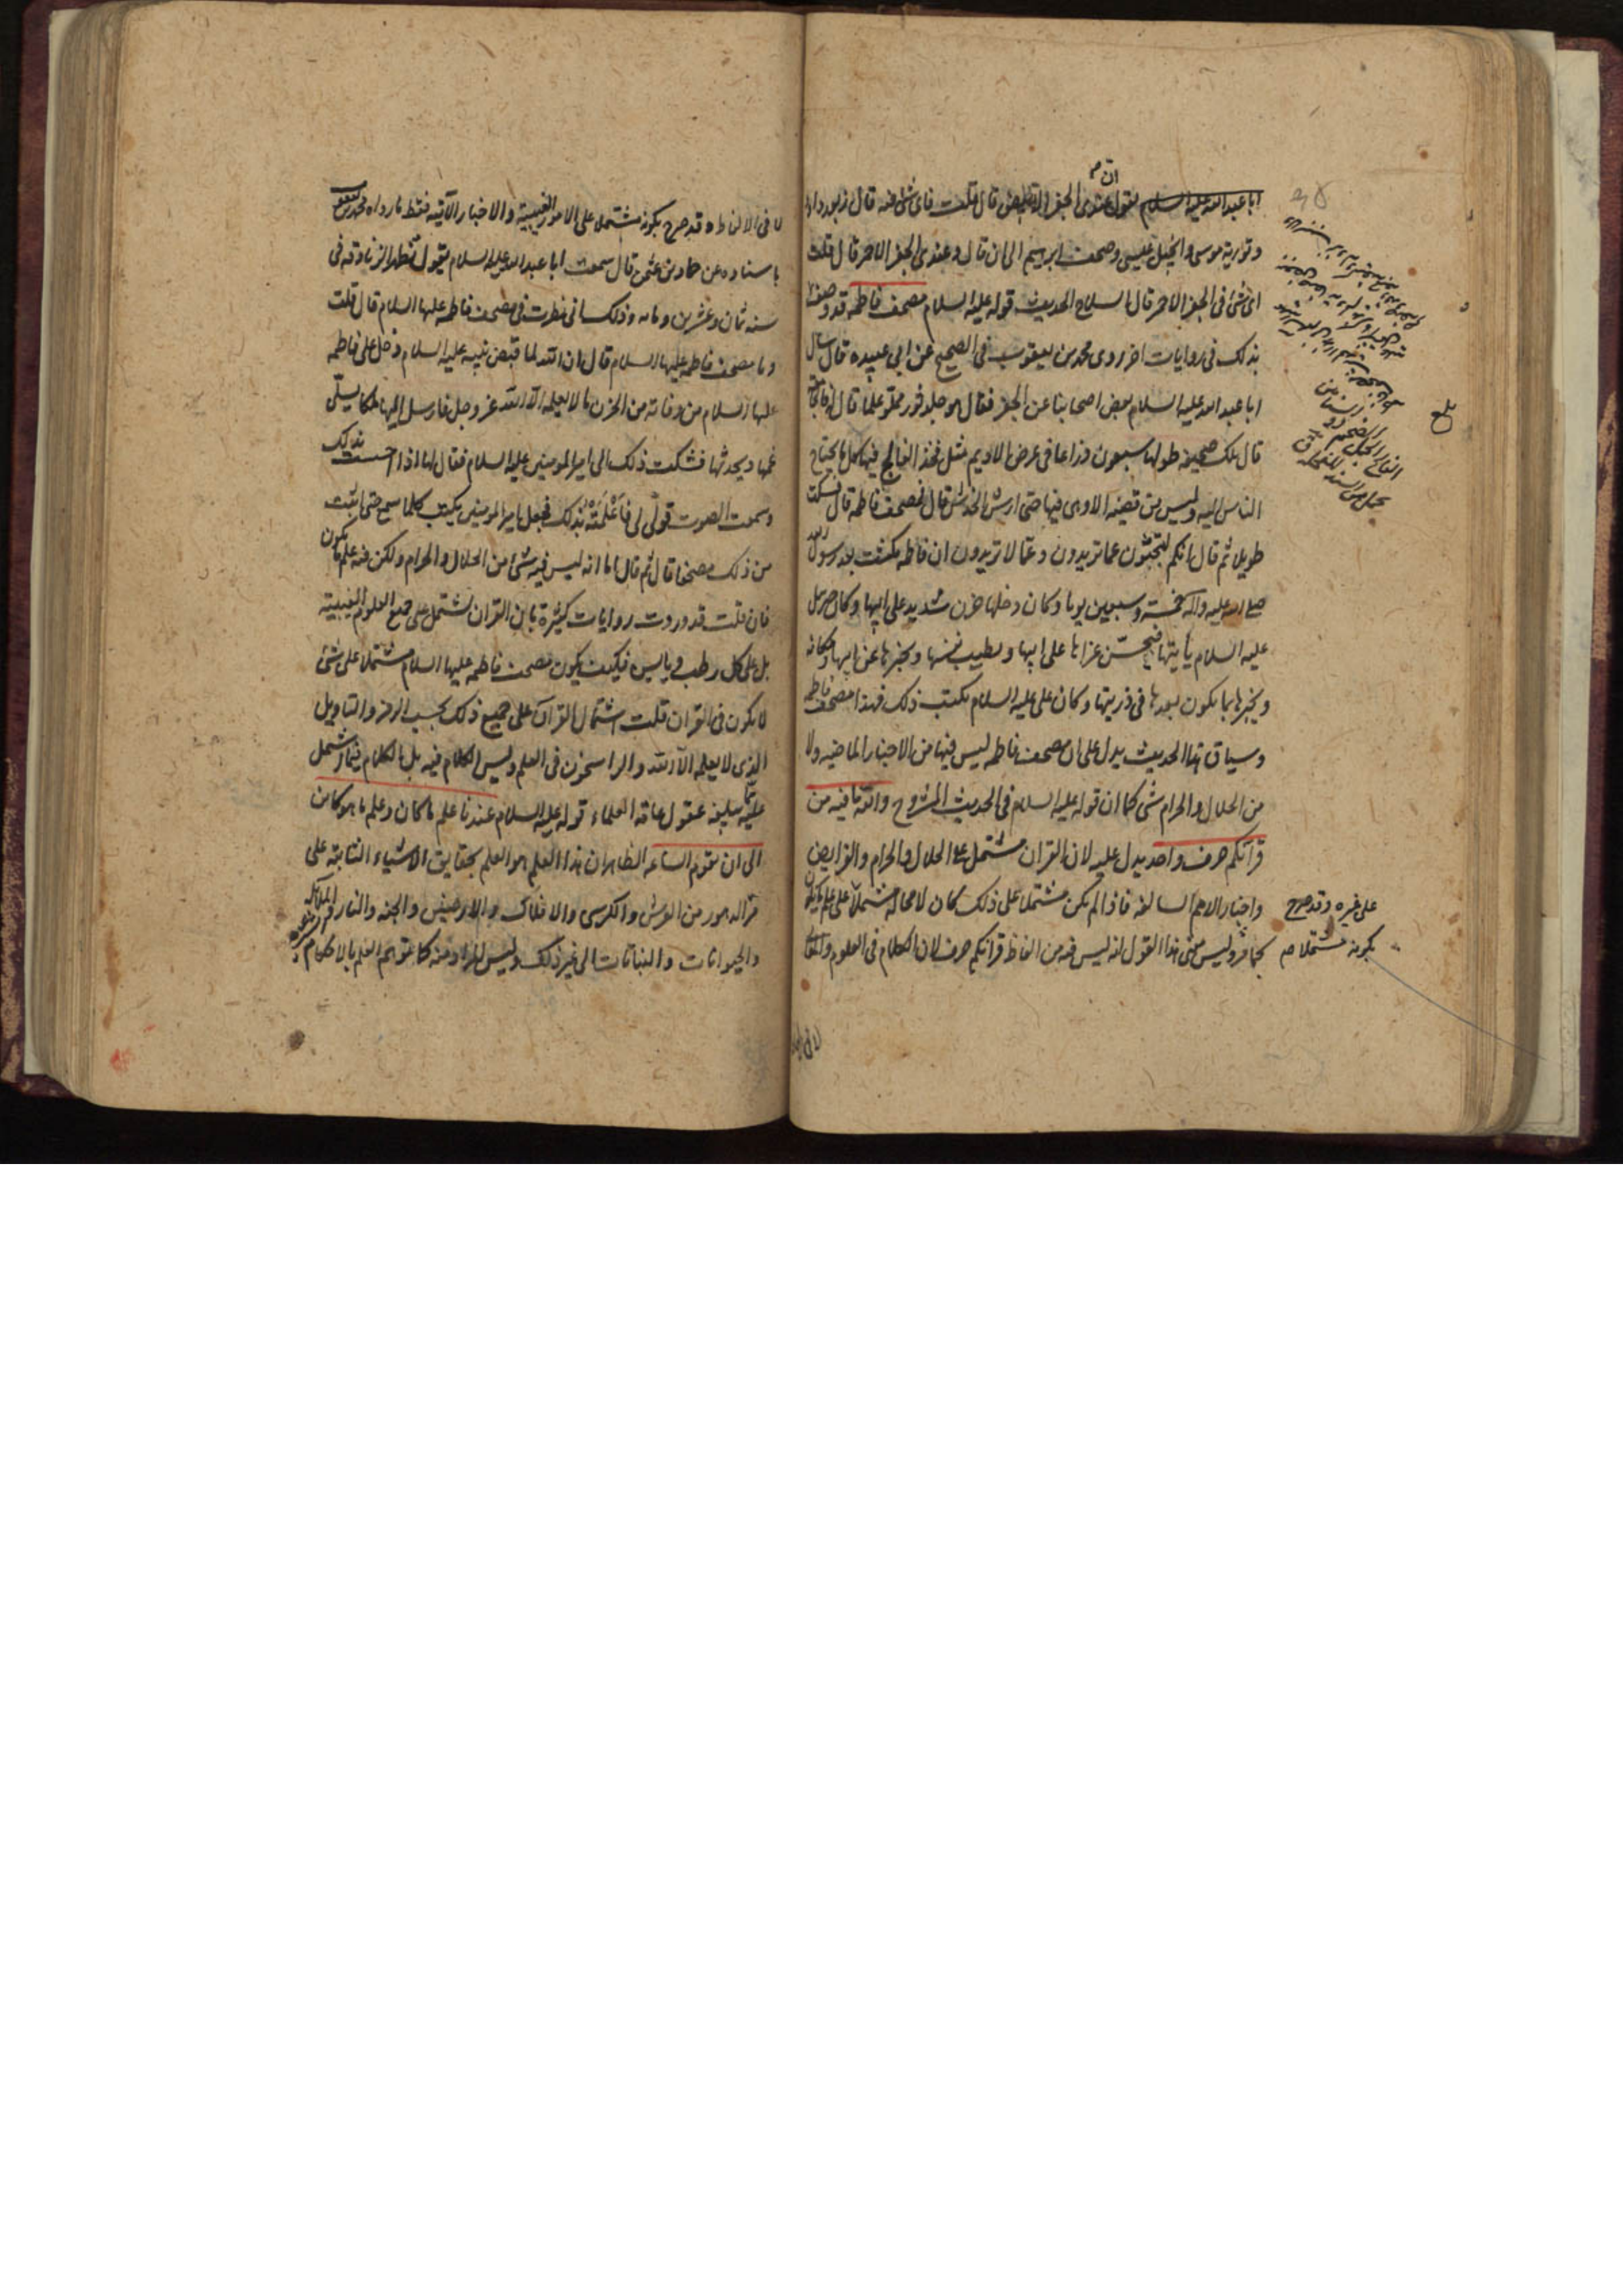 ابا عبد الله عليه السلام يقول ان عندى الجفر الابيض قال قلت فاى شئ فيه قال زبور داود
و تورية موسى و انجيل عيسى و صحف ابرهيم الى ان قال و عندى الجفر الاحمر قال قلت
اى شئ فى الجفر الاحمر قال السلاح الحديث قوله عليه السلام مصحف فاطمه قد وصف
بذلك فى روايات اخر روى محمد بن يعقوب فى الصحيح عن ابى عبيده قال سال
ابا عبد الله عليه السلام بعض اصحابنا عن الجفر فقال هو جلد ثور مملو علما قال له فالجامعة
قال تلك صحيفه طولها سبعون ذراعا فى عرض الاديم مثل فخذ الفالج فيها كل ما يحتاج
الناس اليه و ليس من قضيه الا و هى فيها حتى ارش الخدش قال فمصحف فاطمه قال فسكت
طويلا ثم قال انكم لتبحثون عما تريدون و عما لا تريدون ان فاطمه مكثت بعد رسول الله
صلى الله عليه و آله خمسة و سبعين يوما و كان دخلها حزن شديد على ابيها و كان جبرئيل
عليه السلام يأتيها فيحسن عزاها على ابيها و يطيب نفسها و يخبرها عن ابيها و مكانه
و يخبرها بما يكون بعدها فى ذريتها و كان على عليه السلام يكتب ذلك فهذا مصحف فاطمه
و سياق هذا الحديث يدل على ان مصحف فاطمه ليس فيها من الاخبار الماضيه و لا
من الحلال و الحرام شئ كما ان قوله عليه السلام فى الحديث المشروح و الله ما فيه من
قرآنكم حرف واحد يدل عليه لان القران مشتمل على الحلال و الحرام و الفرايض
و اخبار الامم السالفه فاذا لم يكن مشتملا على ذلك كان لا محالة مشتملا على علم ما يكون
كما مر و ليس معنى هذا القول انه ليس فيه من الفاظ قرآنكم حرف لان الكلام فى العلوم و المعانى
بلغ
على غيره و قد صرح
بكونه مشتملا
لا فى الالفاظ و قد صرح بكونه مشتملا على الامور الغيبية و الاخبار الآتيه فقط ما رواه محمد بن يعقوب
باسناده عن حماد بن عثمن قال سمعت ابا عبد الله عليه السلام يقول تظهر الزنادقه فى
سنه ثمان و عشرين و مايه و ذلك انى نظرت فى مصحف فاطمه عليها السلام قال قلت
و ما مصحف فاطمه عليها السلام قال ان الله لما قبض نبيه عليه السلام دخل على فاطمه
عليها السلام من وفاته من الحزن ما لا يعلمه الا الله عز و جل فارسل اليها ملكا يسلّى
غمها و يحدثها فشكت ذلك الى امير المومنين عليه السلام فقال لها اذا احسست بذلك
و سمعت الصوت قولى لى فَاَعْلَمَتْهُ بذلك فجعل امير المومنين يكتب كلما سمع حتى اثبت
من ذلك مصحفا قال ثم قال اما انه ليس فيه شئ من الحلال و الحرام و لكن فيه علم ما يكون
فان قلت قد وردت روايات كثيرة بان القران مشتمل على جميع العلوم الغيبية
بل على كل رطب و يابس فكيف يكون مصحف فاطمه عليها السلام مشتملا على شئ
لا يكون فى القران قلت اشتمال القرآن على جميع ذلك بحسب الرمز و التاويل
الذى لا يعلمه الا الله و الراسخون فى العلم و ليس الكلام فيه بل الكلام فيما اشتمل
عليه مما يبلغه عقول عامة العلماء قوله عليه السلام عندنا علم ما كان و علم ما هو كائن
الى ان تقوم الساعه الظاهر ان هذا العلم هو العلم بحقايق الاشياء الثابتة على
مر الدهور من العرش و الكرسى و الافلاك و الارضين و الجنه و النار و الملائكه
و الحيوانات و النباتات الى غير ذلك و ليس المراد منه كما يتوهم العلم بالاحكام